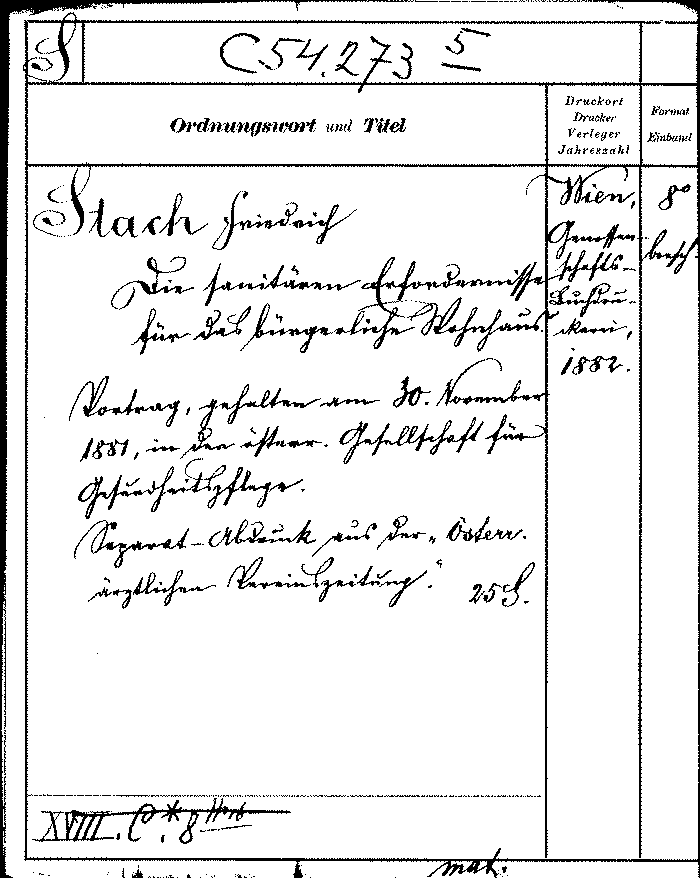 S
C 54.273 5
Ordnungswort und Titel
Druckort
Drucker
Verleger
Jahreszahl
Format
Einband
Stach Friedrich
Die sanitären Erfordernisse
für das bürgerliche Wohnhaus.
Vortrag, gehalten am 30. November
1881, in der österr. Gesellschaft für
Gesundheitspflege.
Separat-Abdruck aus der „Österr.
ärztlichen Vereinszeitung." 25 S.
Wien,
Genossen-
schafts-
Buchdru-
ckerei,
1882.
8°
brosch.
XVIII. C*. 8
mat.